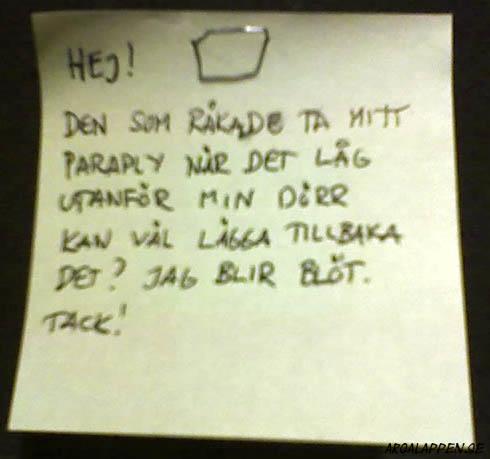 HEJ!
DEN SOM RÅKADE TA MITT
PARAPLY NÄR DET LÅG
UTANFÖR MIN DÖRR
KAN VÄL LÄGGA TILLBAKA
DET? JAG BLIR BLÖT.
TACK!
ARGALAPPEN.SE